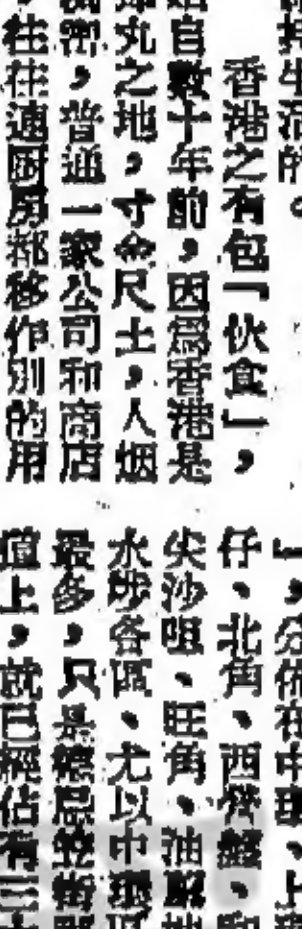 持生活的。
香港之有包「伙食」，
自數十年前，因爲香港是
丸之地，寸金尺土，人烟
密，普通一家公司和商店
往往連厨房都移作別的用
」，分佈在中環、上
仔、北角、西營盤、
尖沙咀、旺角、油麻地
水埗各區、尤以中環
最多，只是德忌笠街
道上，就已經佔有